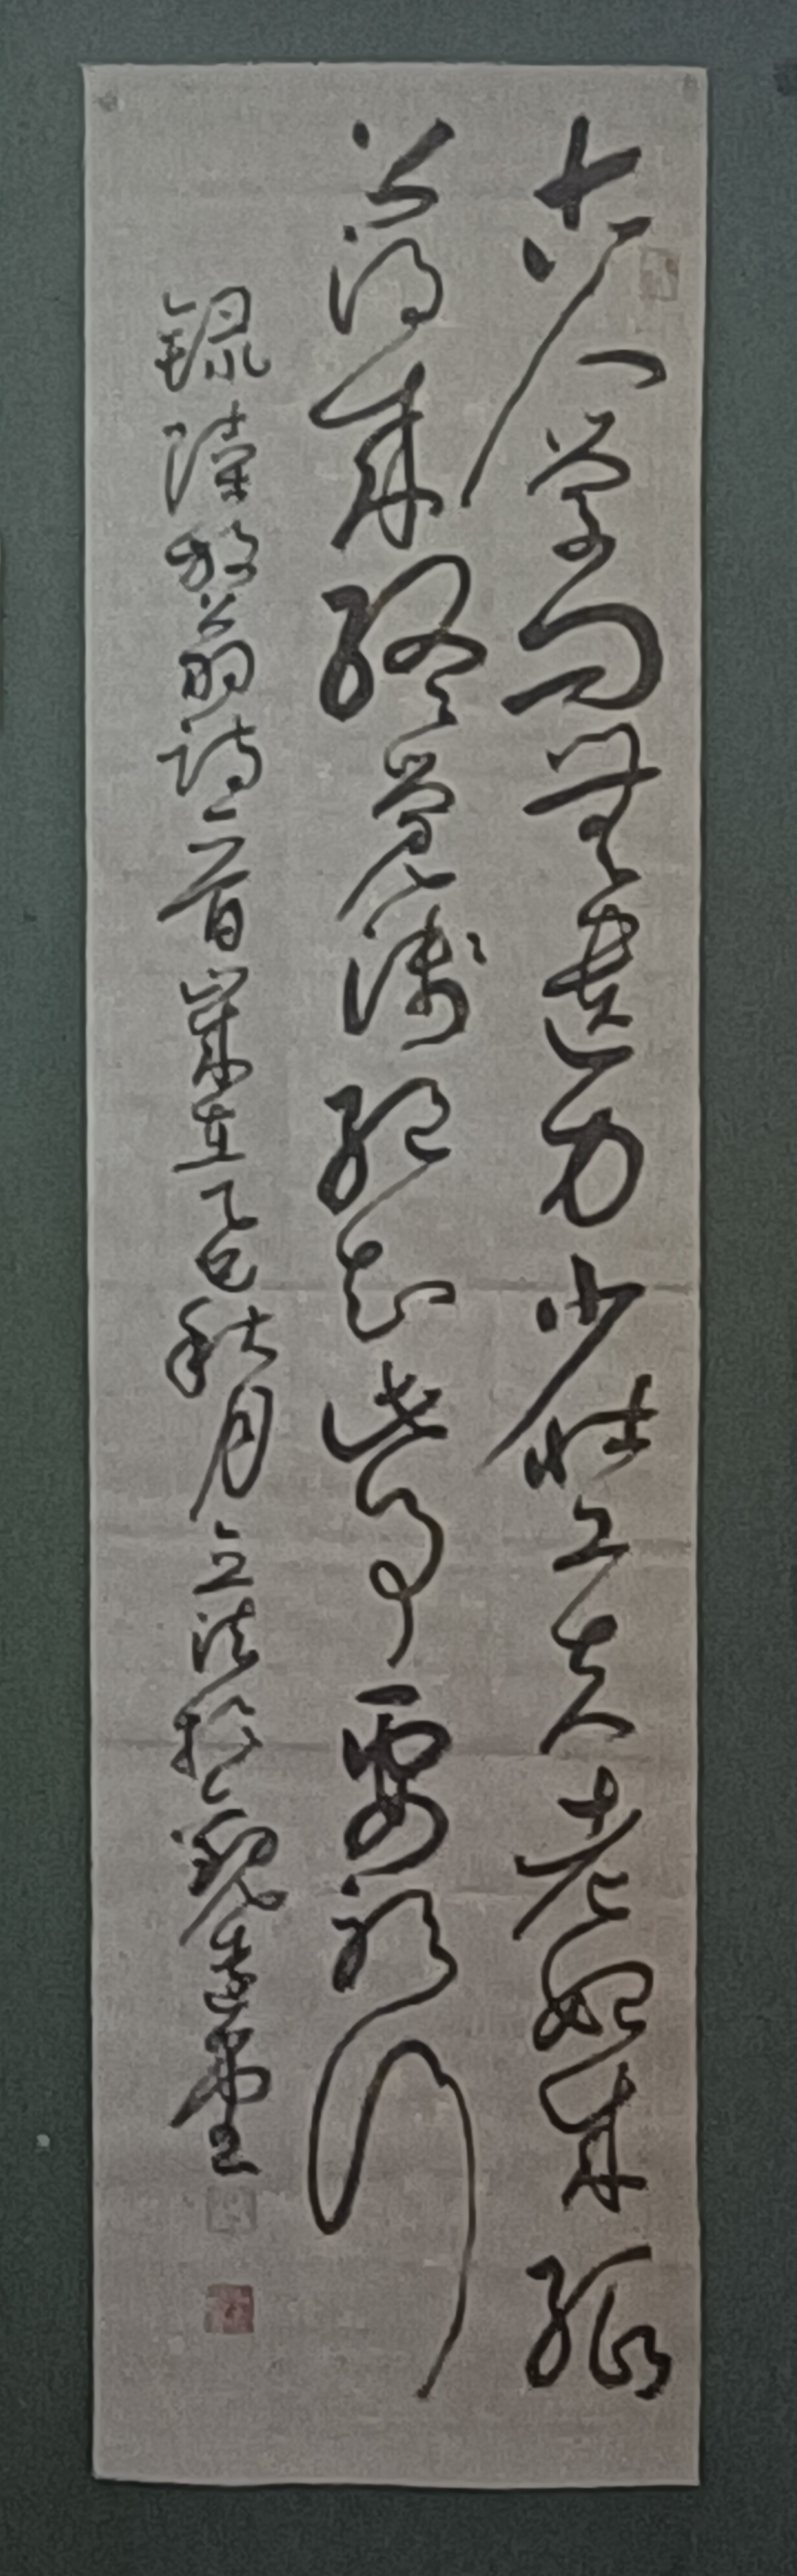 古人學問無遺力少壯工夫老始成紙
上得來終覺淺絕知此事要躬行
錄陸放翁詩一首歲在乙巳秋月立法於觀遠堂